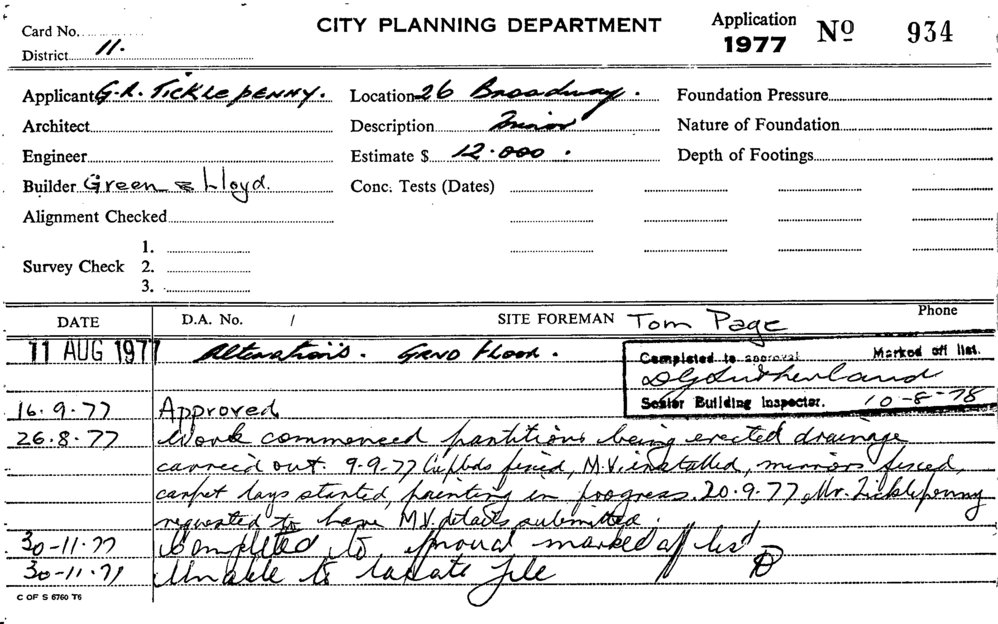 Card No.
CITY PLANNING DEPARTMENT
Application 1977 No 934
District 11.
Applicant G.R. TICKLEPENNY. Location 26 Broadway. Foundation Pressure
Architect Description Minor Nature of Foundation
Engineer Estimate $ 12.000. Depth of Footings
Builder Green & Lloyd. Conc. Tests (Dates)
Alignment Checked
1.
Survey Check 2.
3.
DATE D.A. No. / SITE FOREMAN Tom Page Phone
11 AUG 1977 Alterations. GRND FLOOR.
Completed to approval Marked off list.
DG Sutherland
Senior Building Inspector. 10-8-78
16.9.77 Approved
26.8.77 Work commenced partitions being erected drainage
carried out. 9-9-77 Cupbds fixed, M.V. installed, mirrors fixed,
carpet lays started, painting in progress. 20.9.77 Mr. Ticklepenny
requested to have M.V. details submitted.
30-11.77 Completed to marked off list
30-11.77 Unable to locate file
C OF S 6760 T6